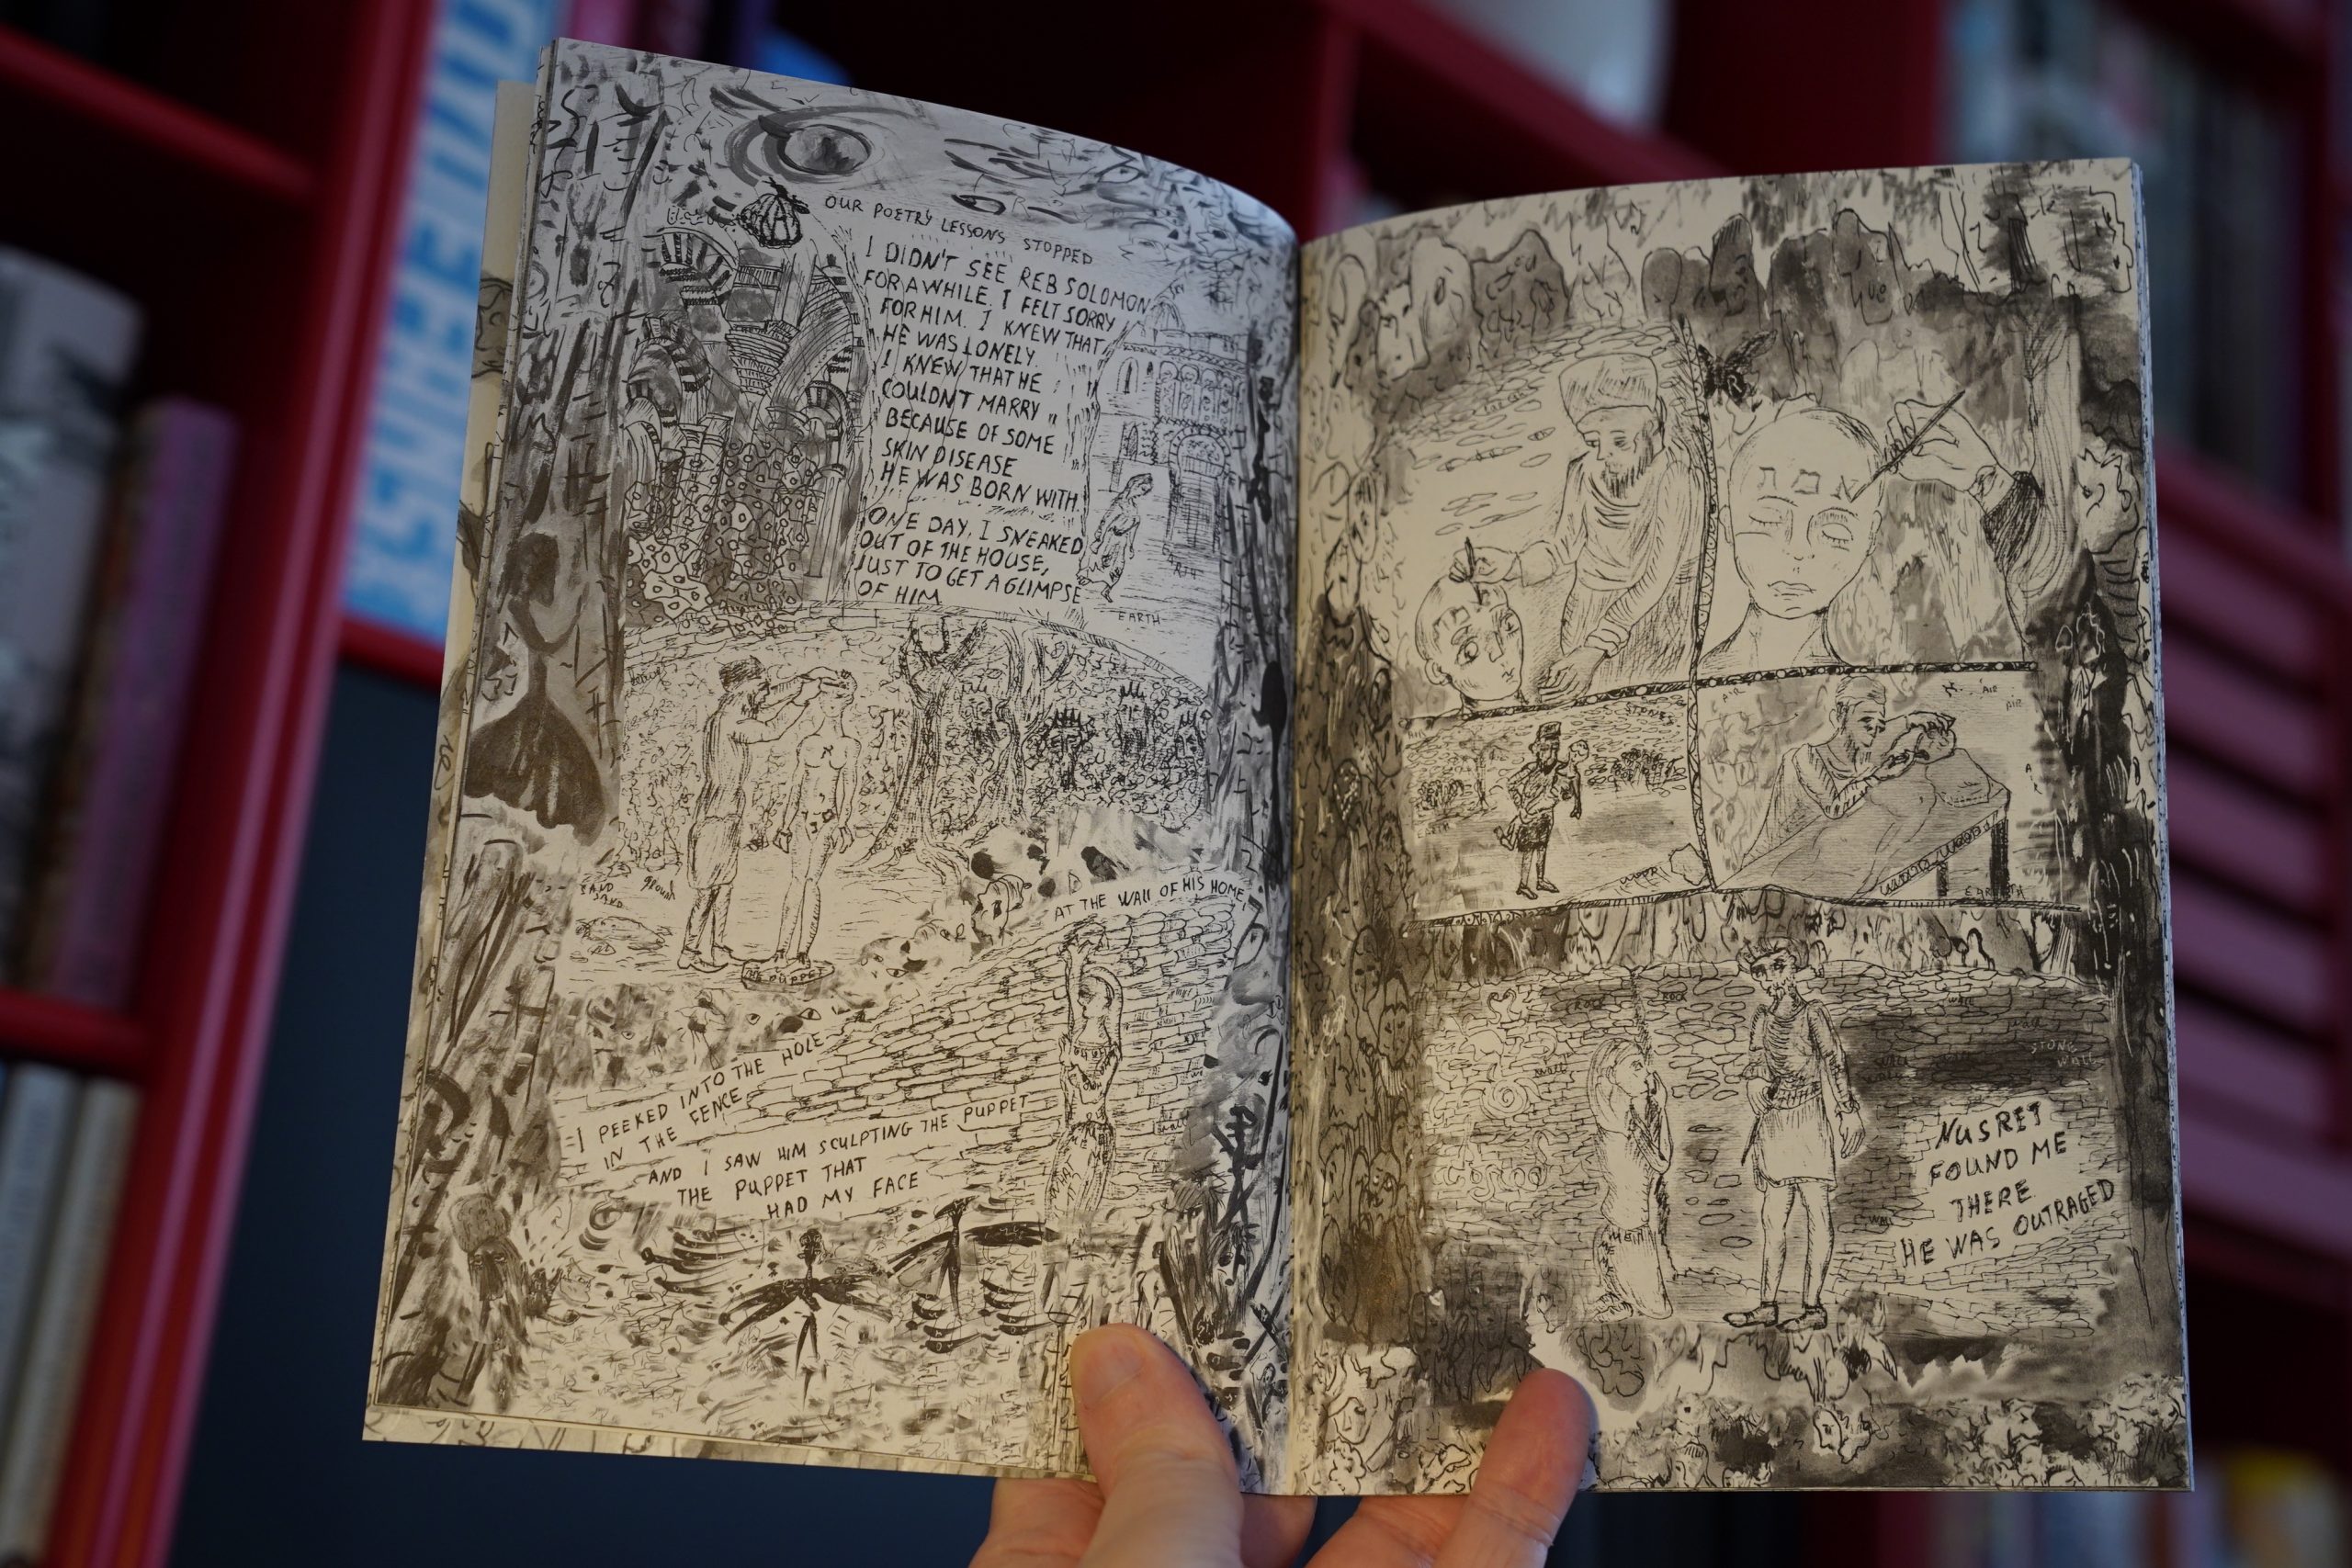 OUR POETRY LESSONS STOPPED
I DIDN'T SEE REB SOLOMON
FOR AWHILE. I FELT SORRY
FOR HIM. I KNEW THAT
HE WAS LONELY.
I KNEW THAT HE
COULDN'T MARRY
BECAUSE OF SOME
SKIN DISEASE
HE WAS BORN WITH.
ONE DAY, I SNEAKED
OUT OF THE HOUSE,
JUST TO GET A GLIMPSE
OF HIM
EARTH
SAND
SAND
ground
THE PUPPET
AT THE WALL OF HIS HOME,
I PEEKED INTO THE HOLE
IN THE FENCE,
AND I SAW HIM SCULPTING THE PUPPET
THE PUPPET THAT
HAD MY FACE
wall
אמת
STONES
EARTH
AIR
AIR
AIR
EARTH
ROCK
ROCK
wall
wall
wall
STONE
WALL
wall
NUSRET
FOUND ME
THERE.
HE WAS OUTRAGED